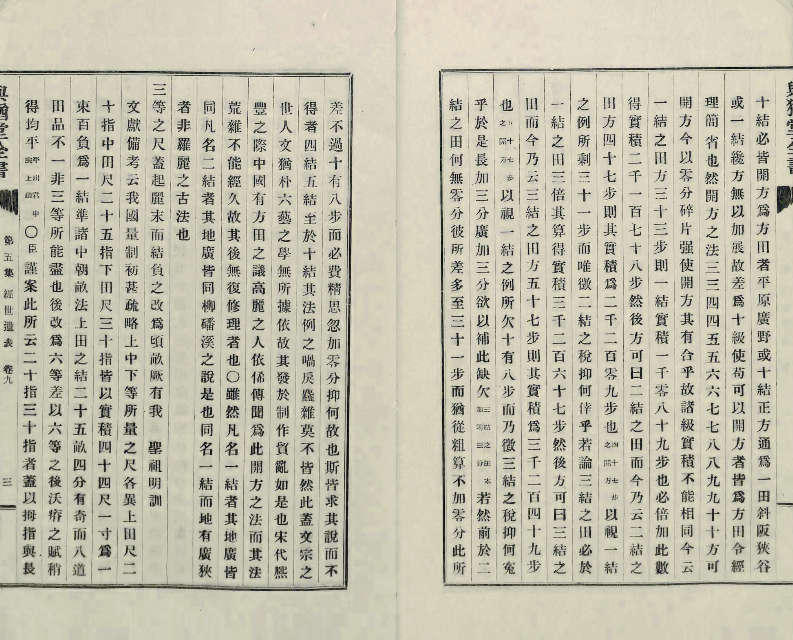 十結必皆開方爲方田者平原廣野或十結正方通爲一田斜阪狹谷
或一結纔方無以加展故差爲十級使苟可以開方者皆爲方田令經
理簡省也然開方之法三三四四五五六六七七八八九九十十方可
開方今以零分碎片强使開方其有合乎故諸級實積不能相同今云
一結之田方三十三步則一結實積一千零八十九步也必倍加此數
得實積二千一百七十八步然後方可曰二結之田而今乃云二結之
田方四十七步則其實積爲二千二百零九步也四十七步之開方以視一結
之例所剩三十一步而唯徵二結之稅抑何倖乎若論三結之田必於
一結之田三倍其算得實積三千二百六十七步然後方可曰三結之
田而今乃云三結之田方五十七步則其實積爲三千二百四十九步
也五十七步之開方以視一結之例所欠十有八步而乃徵三結之稅抑何寃
乎於是長加三分廣加三分欲以補此缺欠三結之田本加零三分若然前於二
結之田何無零分彼所差多至三十一步而猶從粗算不加零分此所
差不過十有八步而必費精思忽加零分抑何故也斯皆求其說而不
得者四結五結至於十結其法例之喎戾龐雜莫不皆然此蓋文宗之
世人文猶朴六藝之學無所據依故其發於制作貿亂如是也宋代熈
豐之際中國有方田之議高麗之人依俙傳聞爲此開方之法而其法
荒雜不能經久故其後無復修理者也〇雖然凡名一結者其地廣皆
同凡名二結者其地廣皆同柳磻溪之說是也同名一結而地有廣狹
者非羅麗之古法也
三等之尺蓋起麗末而結負之改爲頃畝厥有我 聖祖明訓
文獻備考云我國量制初甚疏略上中下等所量之尺各異上田尺二
十指中田尺二十五指下田尺三十指皆以實積四十四尺一寸爲一
束百負爲一結準諸中朝畝法上田之結二十五畝四分有奇而八道
田品不一非三等所能盡也後改爲六等差以六等之後沃瘠之賦稍
得均平〇臣謹案此所云二十指三十指者蓋以拇指與長
與猶堂全書
第五集 經世遺表 卷九
三
與猶堂全書